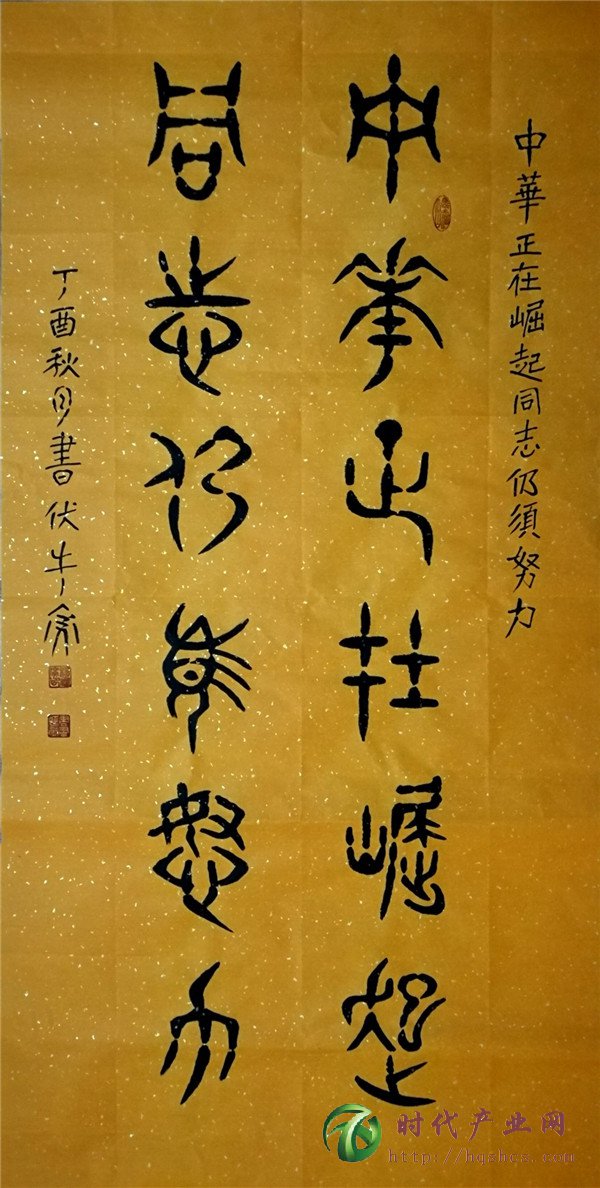 中華正在崛起同志仍須努力
中華正在崛起
同志仍須努力
丁酉秋月書伏牛
时代产业网
http://hqshcs.com